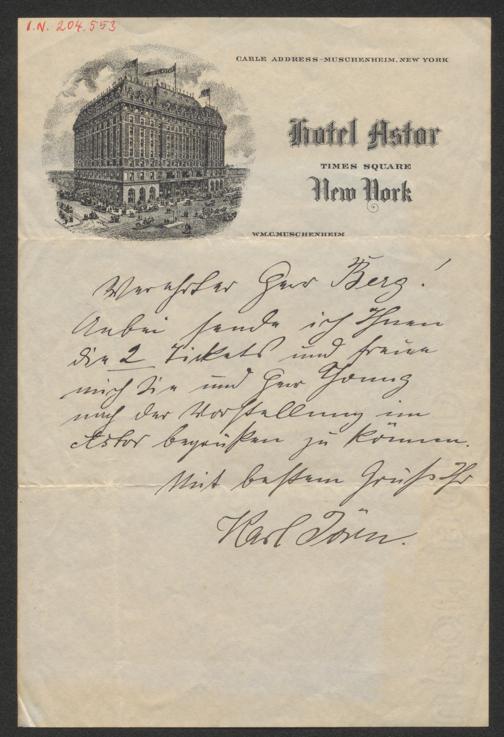 I.N. 204.553
CABLE ADDRESS-MUSCHENHEIM, NEW YORK
Hotel Astor
TIMES SQUARE
New York
WM.C.MUSCHENHEIM
Verehrter Herr Berg!
Anbei sende ich Ihnen
die 2 Tickets und freue
mich Sie und Herr Young
nach der Vorstellung im
Astor begrüßen zu können.
Mit bestem Gruß Ihr
Karl Jörn.